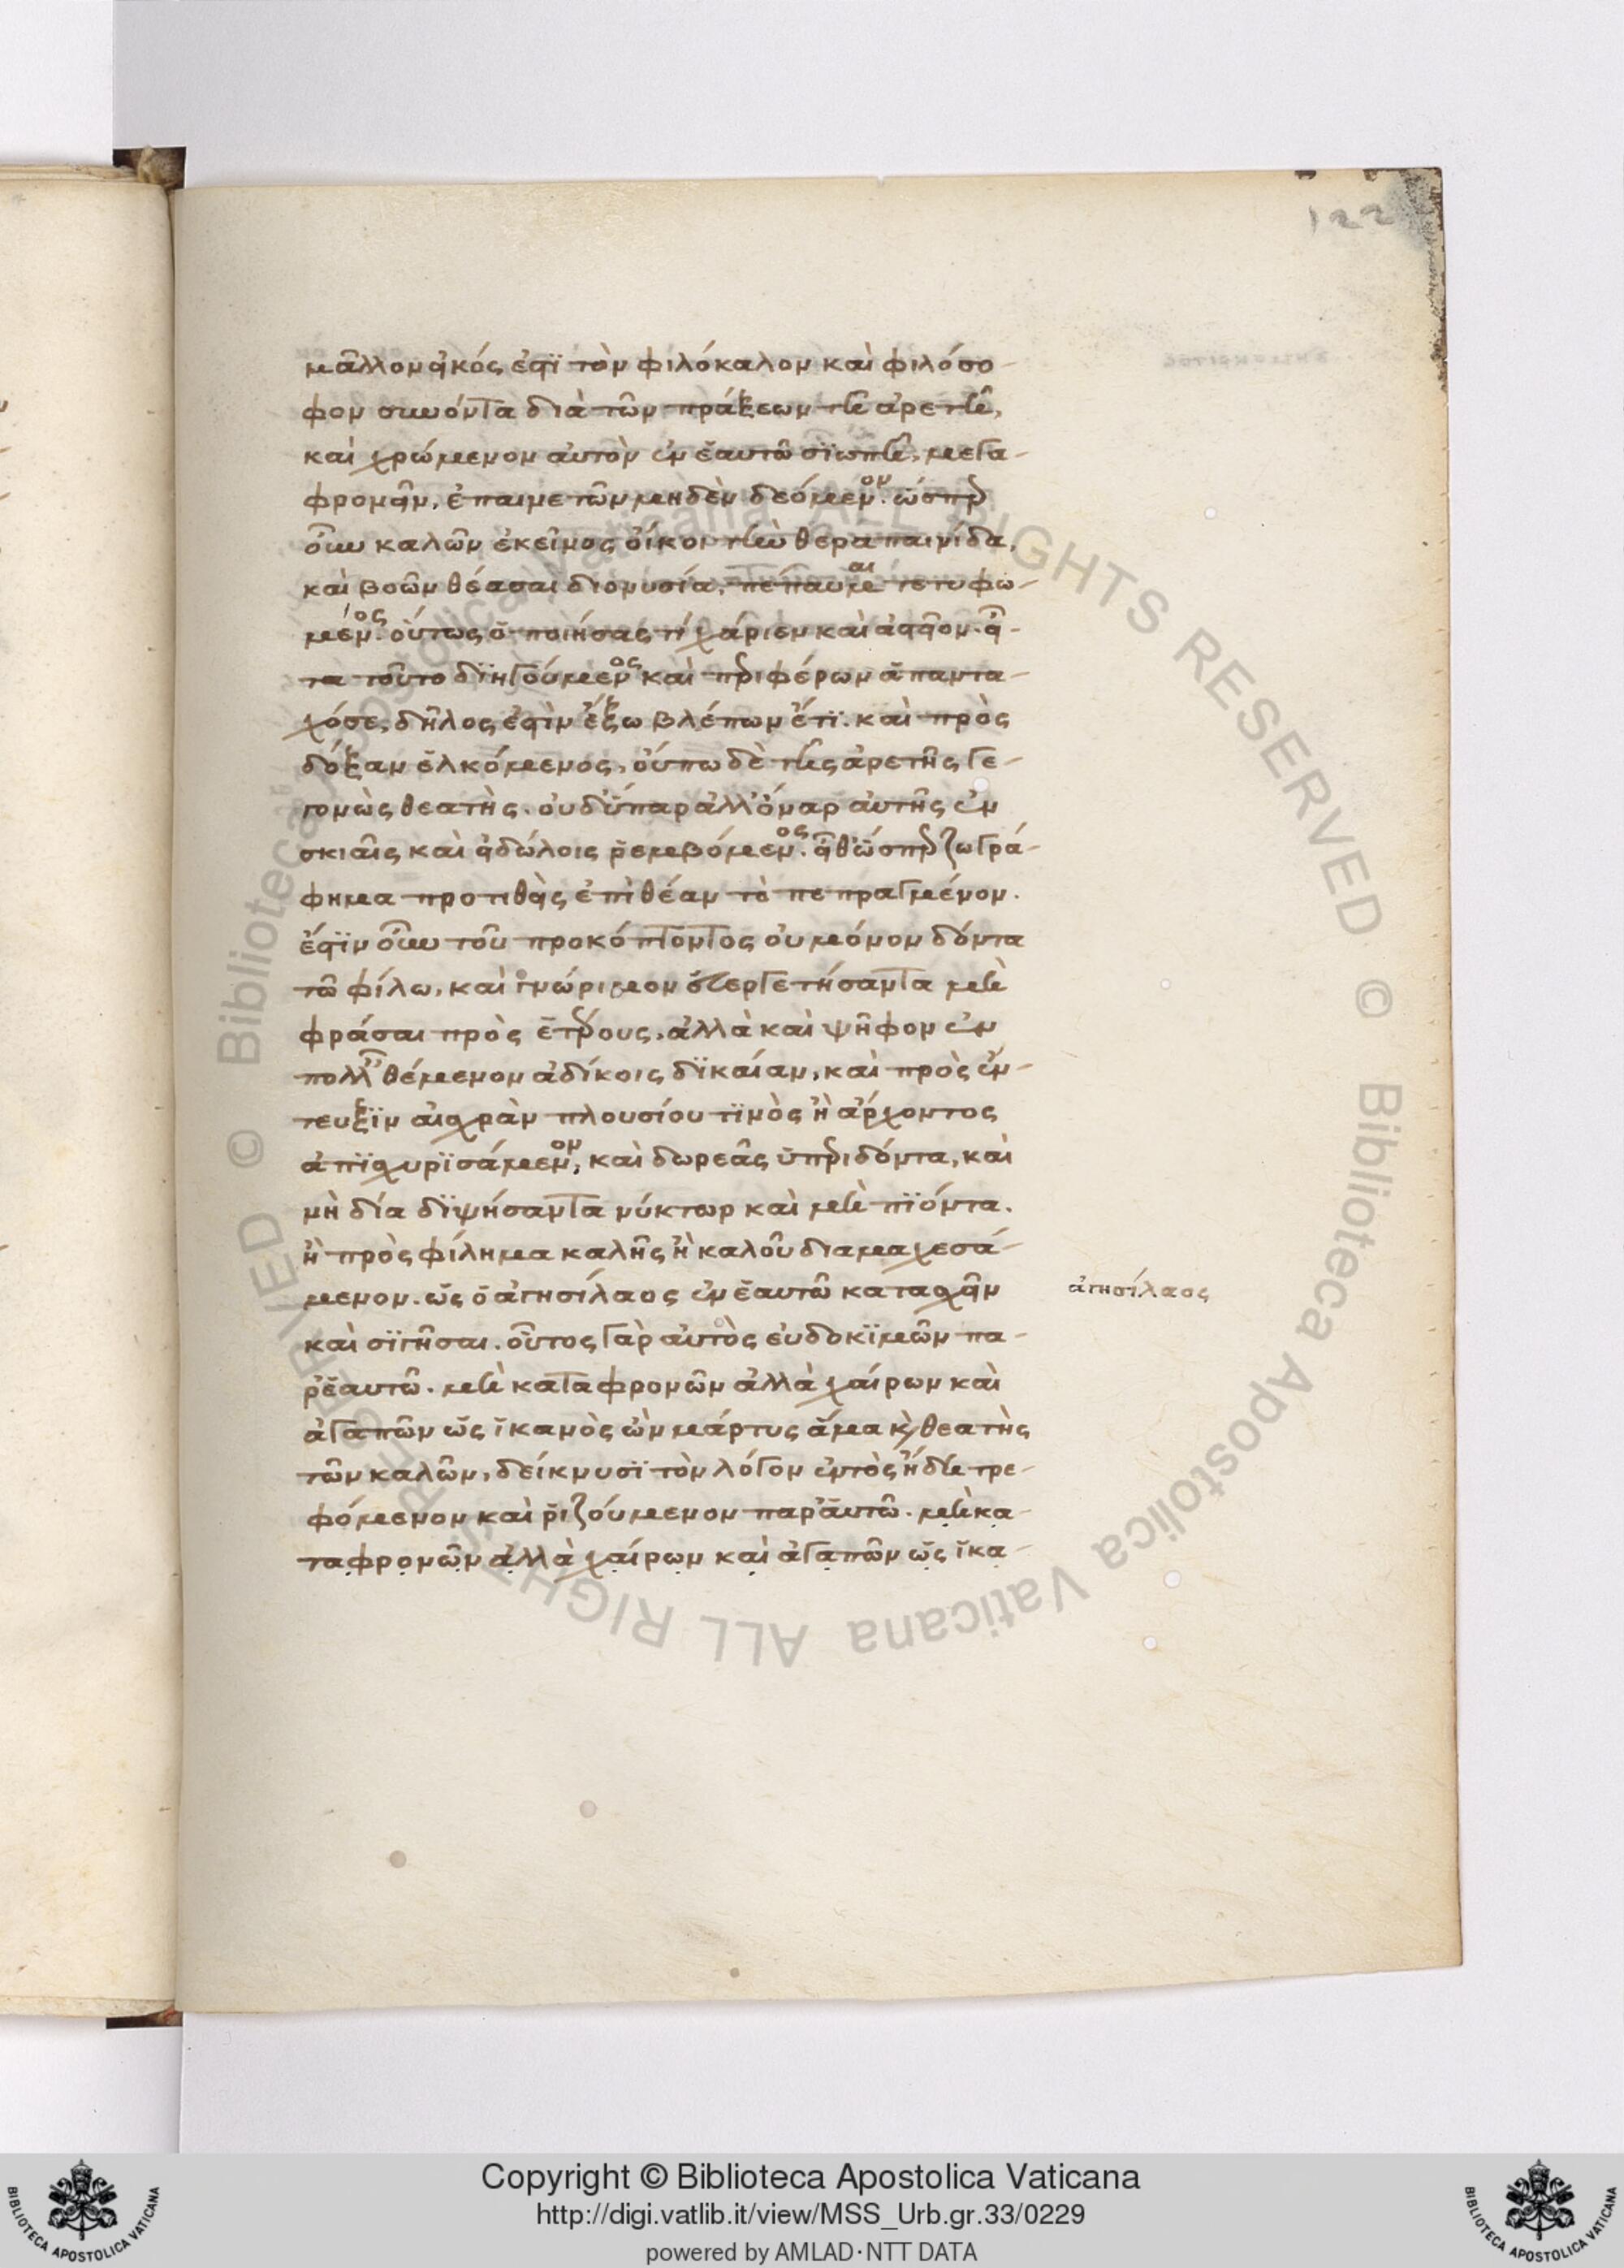 122
μᾶλλον εἰκός ἐστὶ τὸν φιλόκαλον καὶ φιλόσο-
φον συνόντα διὰ τῶν πράξεων τῆ ἀρετῆ,
καὶ χρώμενον αὐτὸν ἐν ἑαυτῶ σιωπῆ, μετα-
φρονεῖν, ἐπαινετῶν μηδὲν δεόμενον. ὥσπερ
οὖν καλῶν ἐκεῖνος οἴκοι τὴν θεραπαινίδα,
καὶ βοῶν θέασαι διονυσία, πέπαυμαι τετυφω-
μένος. οὕτως ὁ ποιήσας τι χάριεν καὶ ἀστεῖον. εἶ-
τα τοῦτο διηγούμενος καὶ περιφέρων ἅπαντα-
χόσε, δῆλος ἐστὶν ἔξω βλέπων ἔτι. καὶ πρὸς
δόξαν ἑλκόμενος, οὔπω δὲ τῆς ἀρετῆς γε-
γονὼς θεατὴς. οὐδ' ὕπαρ ἀλλ' ὄναρ αὐτῆς ἐν
σκιαῖς καὶ εἰδώλοις ῥεμβόμενος. εἶθ' ὥσπερ ζωγρά-
φημα προτιθεὶς ἐπὶ θέαν τὸ πεπραγμένον.
ἔστιν οὖν τοῦ προκόπτοντος οὐ μόνον δόντα
τῶ φίλω, καὶ γνώριμον εὐεργετήσαντα μὴ
φράσαι πρὸς ἑτέρους, ἀλλὰ καὶ ψῆφον ἐν
πολλοῖς θέμενον ἀδίκοις δικαίαν, καὶ πρὸς ἔν-
τευξιν αἰσχρὰν πλουσίου τινὸς ἢ ἄρχοντος
ἀπισχυρισάμενον, καὶ δωρεᾶς ὑπεριδόντα, καὶ
μὴ δία διψήσαντα νύκτωρ καὶ μὴ πιόντα.
ἢ πρὸς φίλημα καλῆς ἢ καλοῦ διαμαχεσά-
μενον. ὡς ὁ ἀγησίλαος ἐν ἑαυτῶ κατασχεῖν
ἀγησίλαος
καὶ σιγῆσαι. οὗτος γὰρ αὐτὸς εὐδοκιμῶν πα-
ρ' ἑαυτῶ. μὴ καταφρονῶν ἀλλὰ χαίρων καὶ
ἀγαπῶν ὡς ἱκανὸς ὢν μάρτυς ἅμα κὶ θεατὴς
τῶν καλῶν, δείκνυσι τὸν λόγον ἐντὸς ἤδη τρε-
φόμενον καὶ ῥιζούμενον παρ' αὑτῶ. μὴ κα-
ταφρονῶν ἀλλὰ χαίρων καὶ ἀγαπῶν ὡς ἱκα-
© Biblioteca Apostolica Vaticana ALL RIGHTS RESERVED © Biblioteca Apostolica Vaticana ALL RIGHTS RESERVED
Copyright © Biblioteca Apostolica Vaticana
http://digi.vatlib.it/view/MSS_Urb.gr.33/0229
powered by AMLAD·NTT DATA
BIBLIOTECA APOSTOLICA VATICANA
BIBLIOTECA APOSTOLICA VATICANA